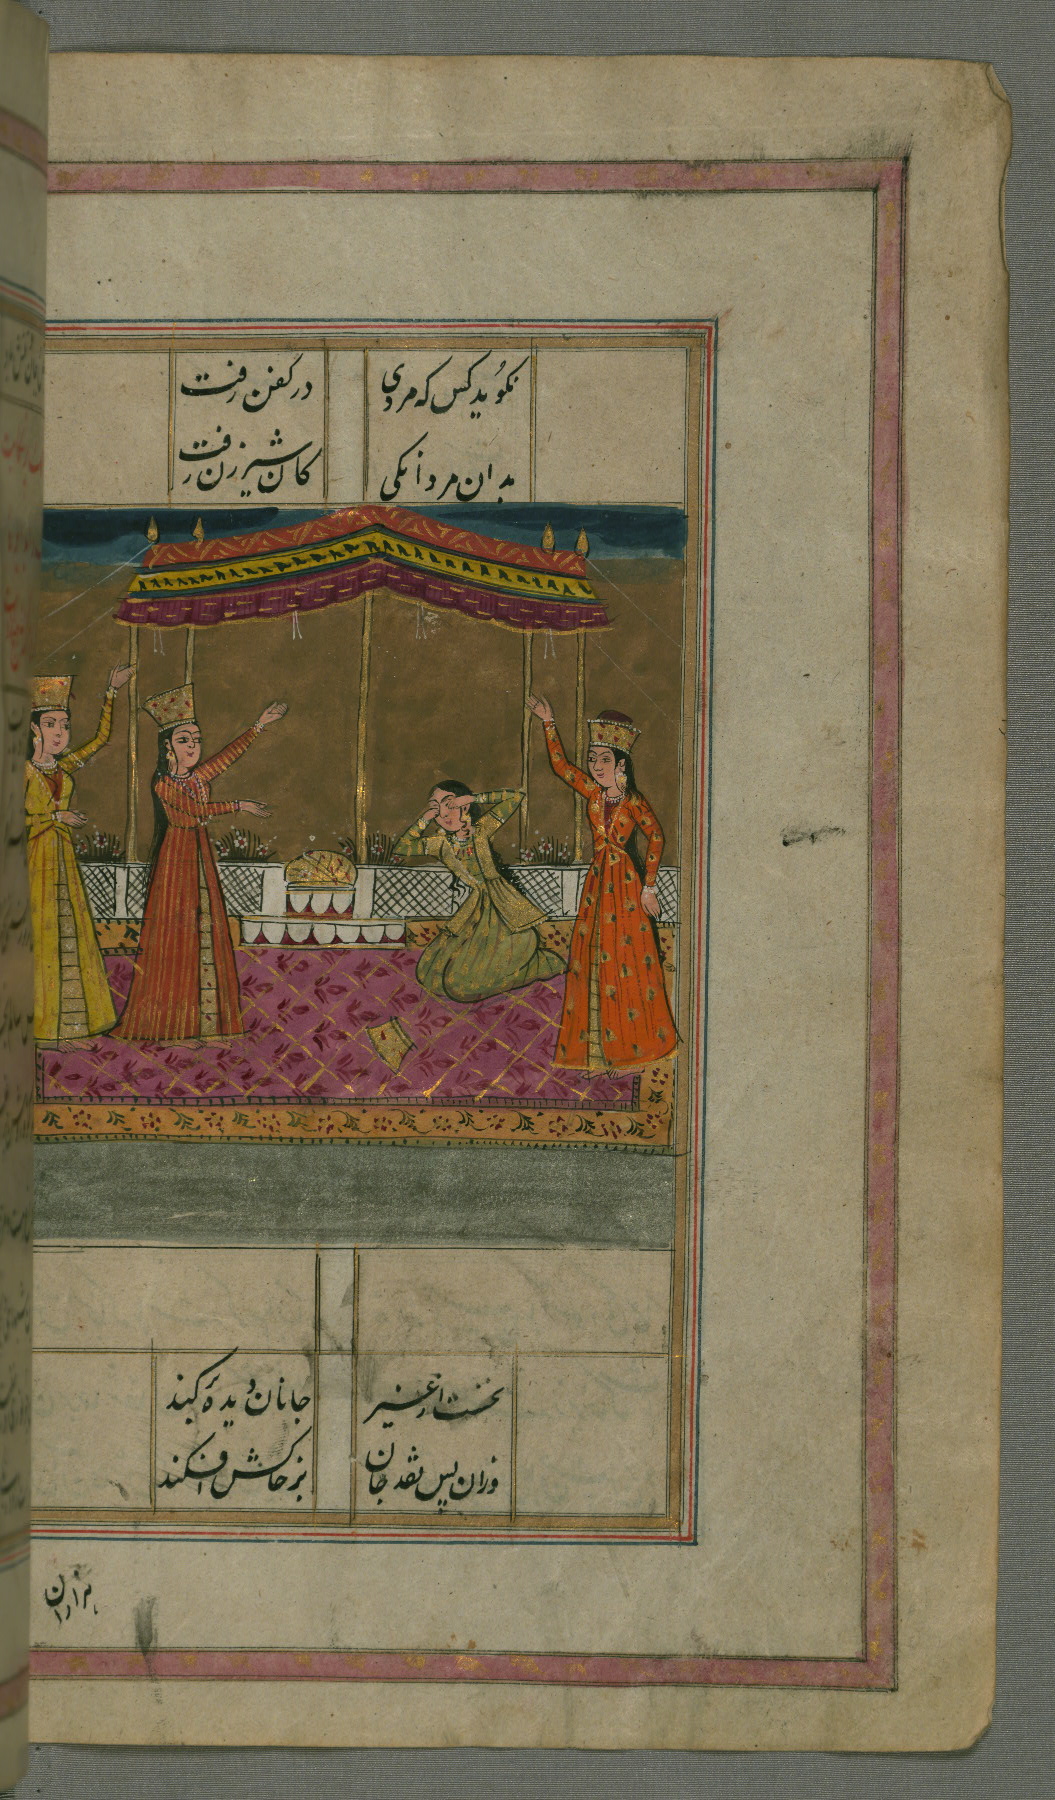 نکوید کس که مردی در کفن رفت
بدان مردانکی کان شیرزن رفت
نخست از غیر جانان دیده برکند
وزان پس نقد جان بر خاکش افکند